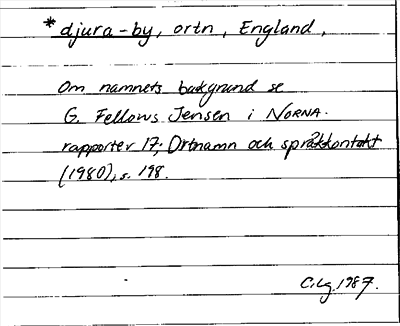 * djura-by, ortn, England,
Om namnets bakgrund se
G. Fellows Jensen i NORNA-
rapporter 17; Ortnamn och språkkontakt
(1980), s. 198.
C.Lg. 1987.